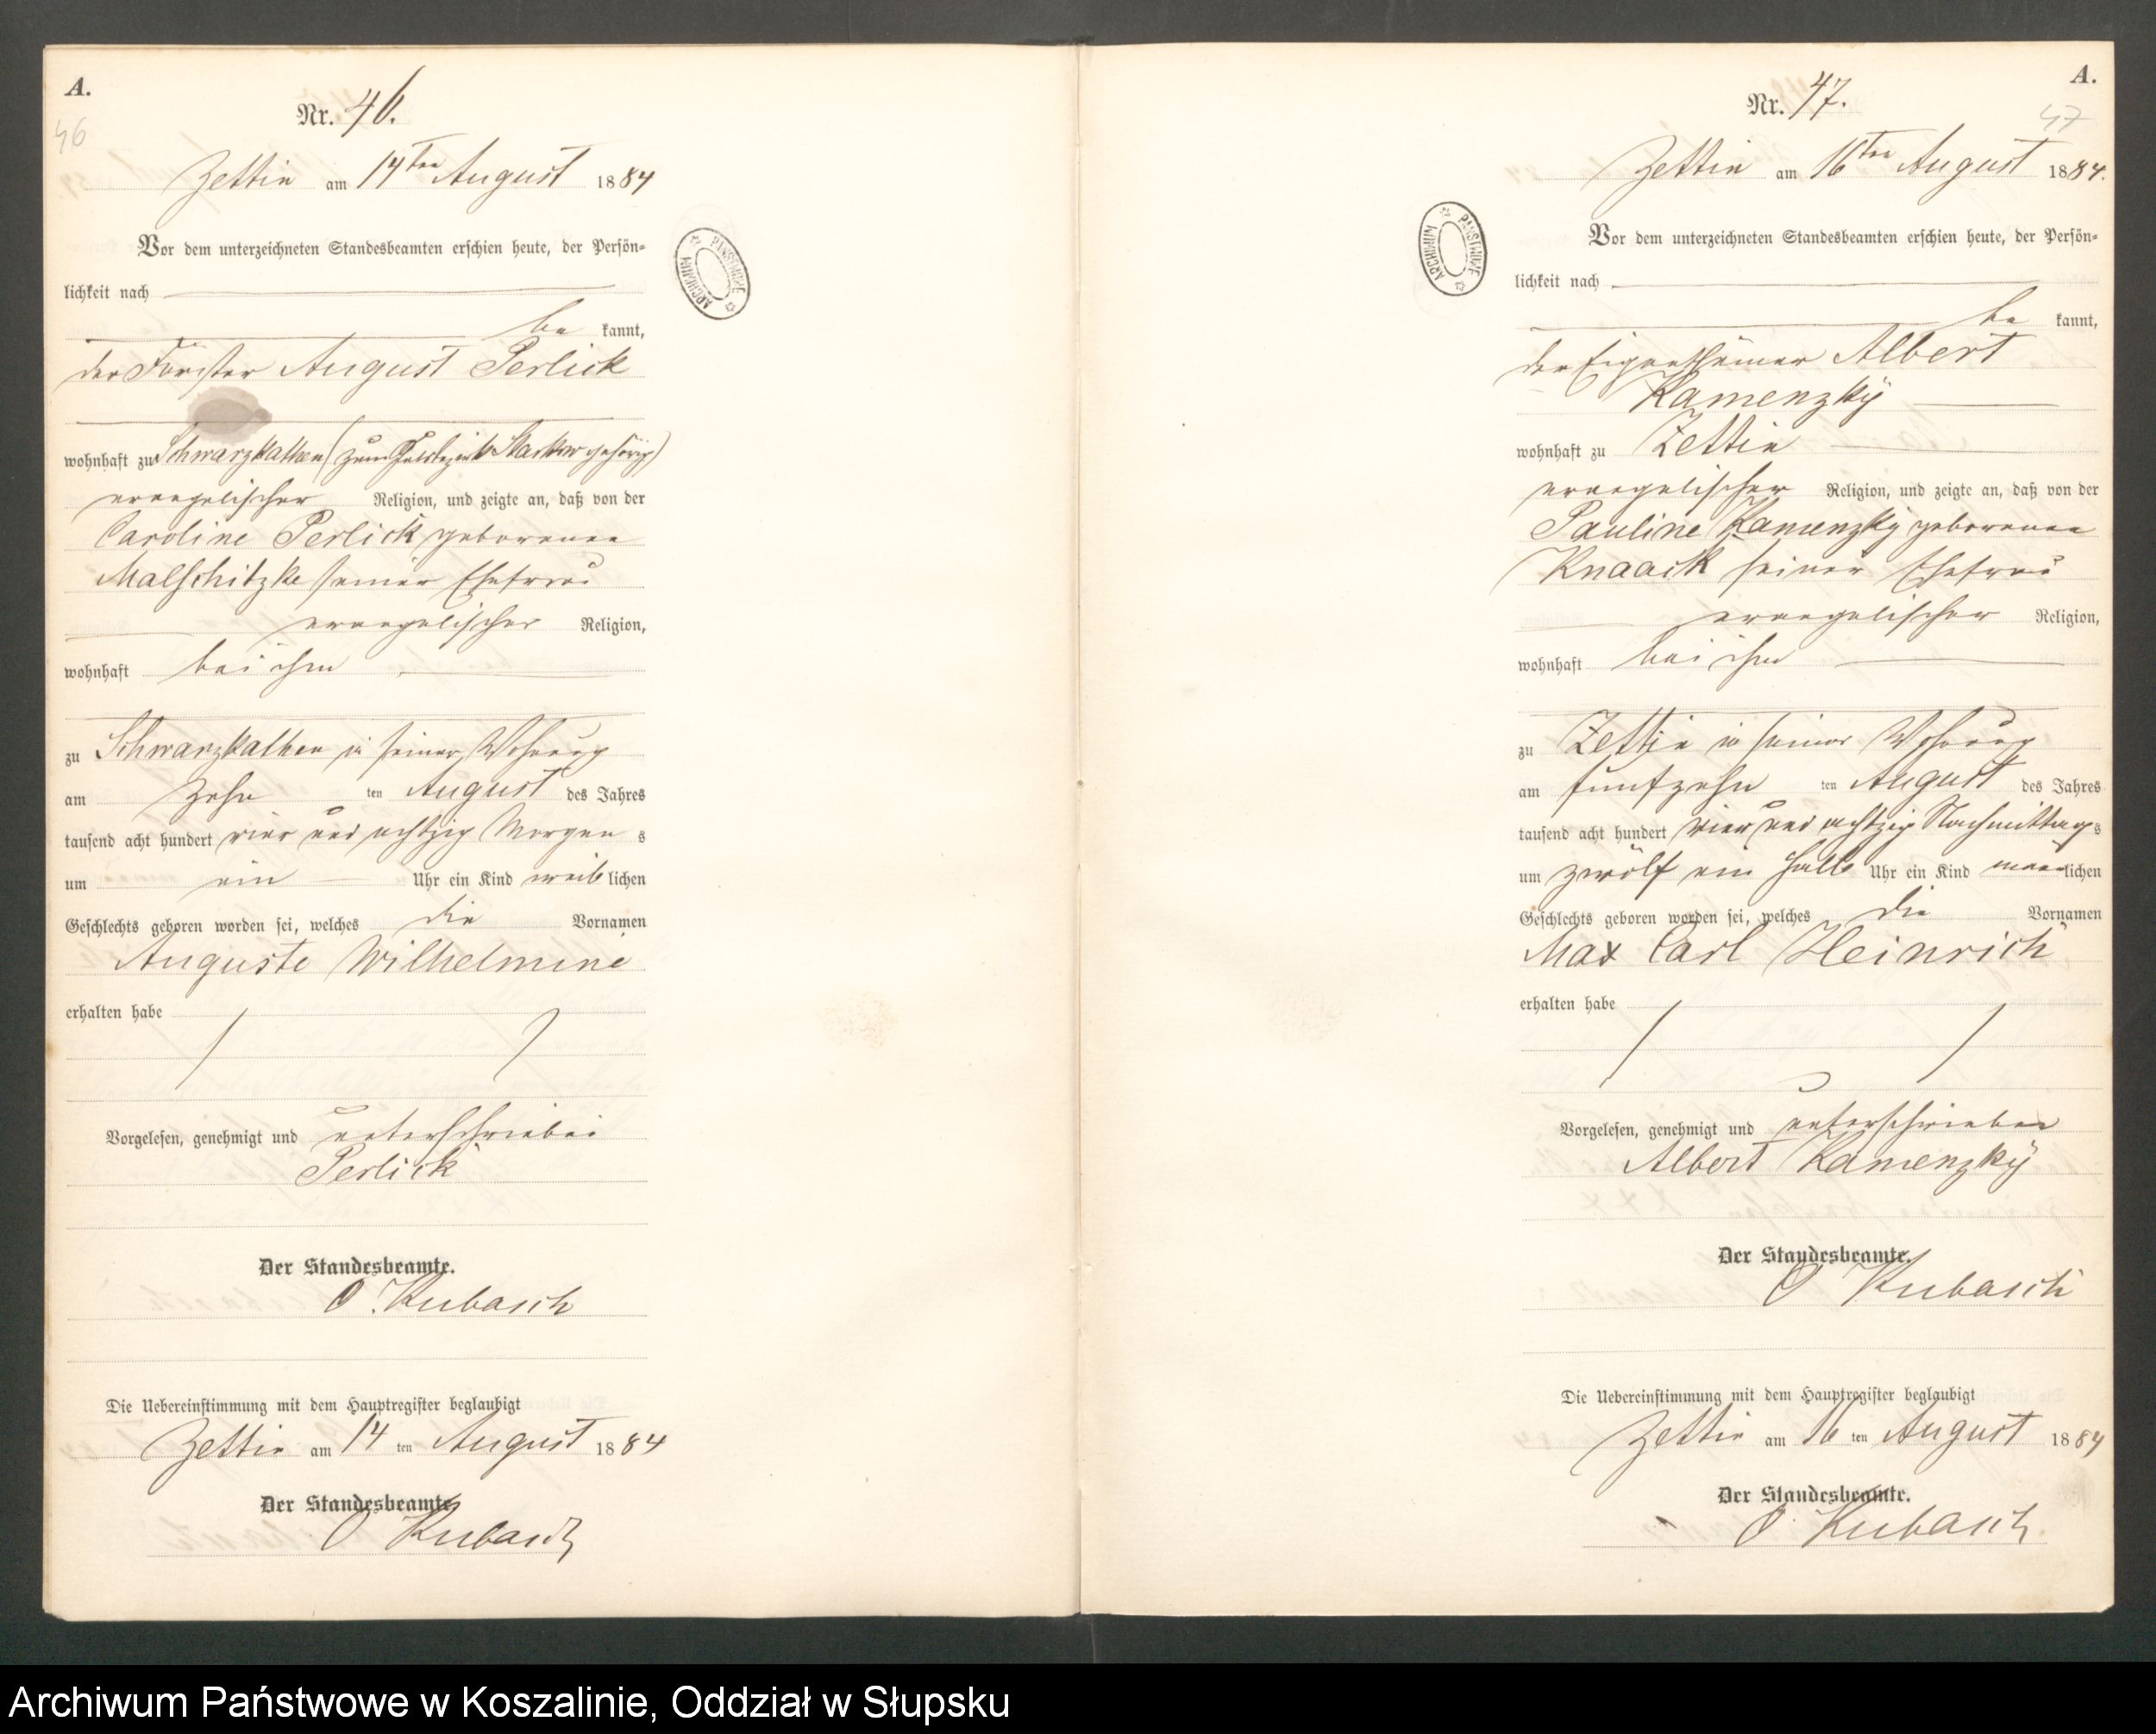 A.
46
Nr. 46.
Zettin am 14ten August 1884
Vor dem unterzeichneten Standesbeamten erschien heute, der Persön-
lichkeit nach
be kannt,
der Förster August Perlick
wohnhaft zu Schwarzkathen (zum Gutsbezirk gehörig)
evangelischer Religion, und zeigte an, daß von der
Caroline Perlick geborenen
Malschitzke seiner Ehefrau
evangelischer Religion,
wohnhaft bei ihm
zu Schwarzkathen in seiner Wohnung
am zehn ten August des Jahres
tausend acht hundert vier und achtzig Morgen s
um ein Uhr ein Kind weib lichen
Geschlechts geboren worden sei, welches die Vornamen
Auguste Wilhelmine
erhalten habe
Vorgelesen, genehmigt und unterschrieben
Perlick
Der Standesbeamte.
O. Kubasch
Die Uebereinstimmung mit dem Hauptregister beglaubigt
Zettin am 14 ten August 1884
Der Standesbeamte.
O Kubasch
ARCHIWUM PAŃSTWOWE
A.
47
Nr. 47.
Zettin am 16ten August 1884.
Vor dem unterzeichneten Standesbeamten erschien heute, der Persön-
lichkeit nach
be kannt,
der Eigenthümer Albert
Kamenzky
wohnhaft zu Zettin
evangelischer Religion, und zeigte an, daß von der
Pauline Kamenzky geborenen
Knaack seiner Ehefrau
evangelischer Religion,
wohnhaft bei ihm
zu Zettin in seiner Wohnung
am fünfzehn ten August des Jahres
tausend acht hundert vier und achtzig Nachmittag s
um zwölf ein halb Uhr ein Kind männlichen
Geschlechts geboren worden sei, welches die Vornamen
Max Carl Heinrich
erhalten habe
Vorgelesen, genehmigt und unterschrieben
Albert Kamenzky
Der Standesbeamte.
O Kubasch
Die Uebereinstimmung mit dem Hauptregister beglaubigt
Zettin am 16 ten August 1884
Der Standesbeamte.
O. Kubasch
ARCHIWUM PAŃSTWOWE
Archiwum Państwowe w Koszalinie, Oddział w Słupsku